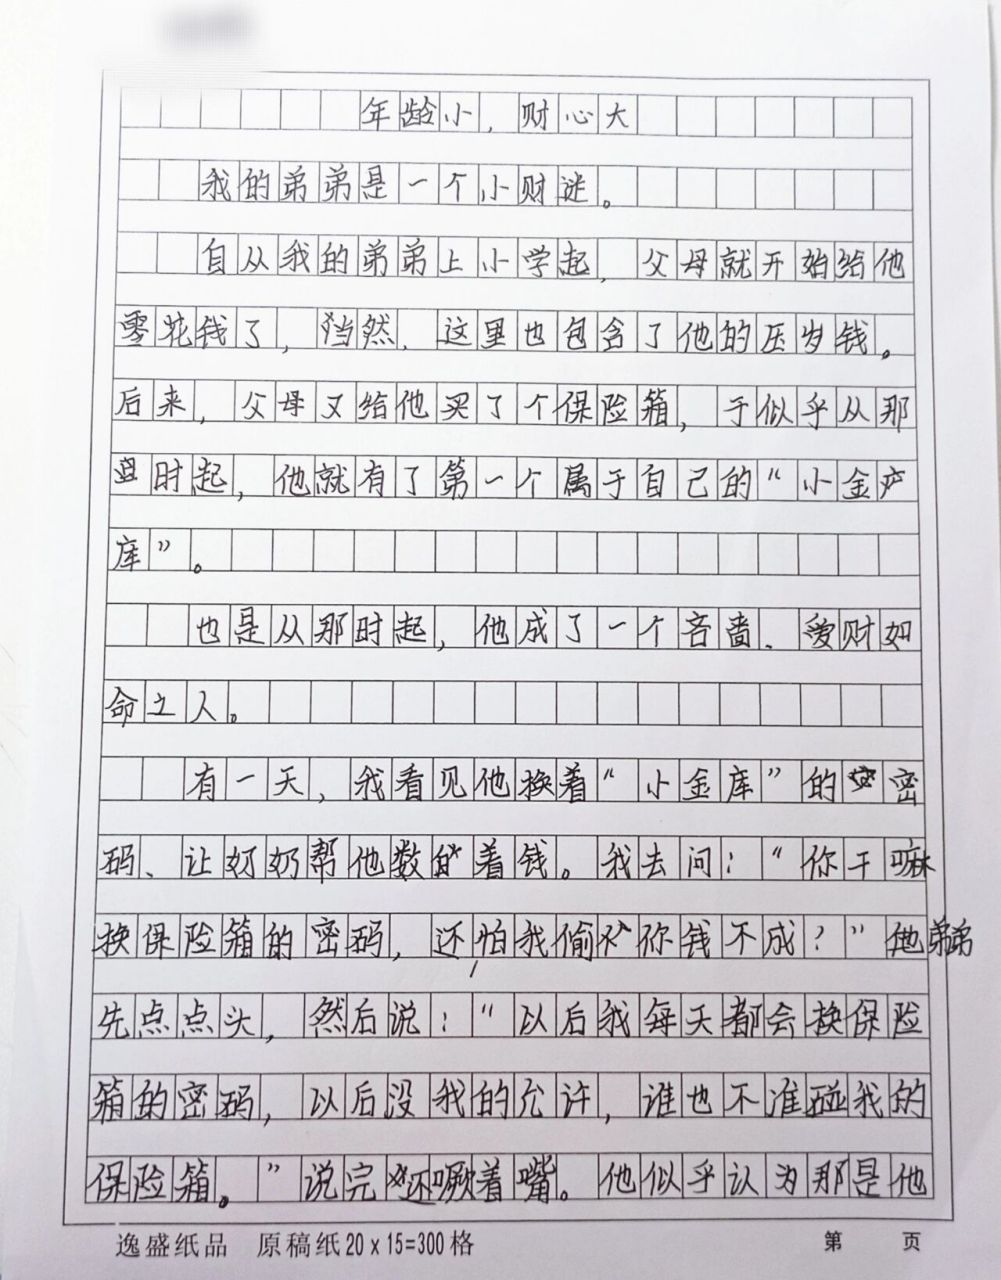 年龄小，财心大
我的弟弟是一个小财迷。
自从我的弟弟上小学起，父母就开始给他
零花钱了，当然，这里也包含了他的压岁钱。
后来，父母又给他买了个保险箱，于似乎从那
时起，他就有了第一个属于自己的“小金
库”。
也是从那时起，他成了一个吝啬、爱财如
命之人。
有一天，我看见他换着“小金库”的密
码、让奶奶帮他数着钱。我去问：“你干嘛
换保险箱的密码，还怕我偷你钱不成？”弟弟
先点点头，然后说：“以后我每天都会换保险
箱的密码，以后没我的允许，谁也不准碰我的
保险箱。”说完还噘着嘴。他似乎认为那是他
逸盛纸品 原稿纸20×15=300格 第 页